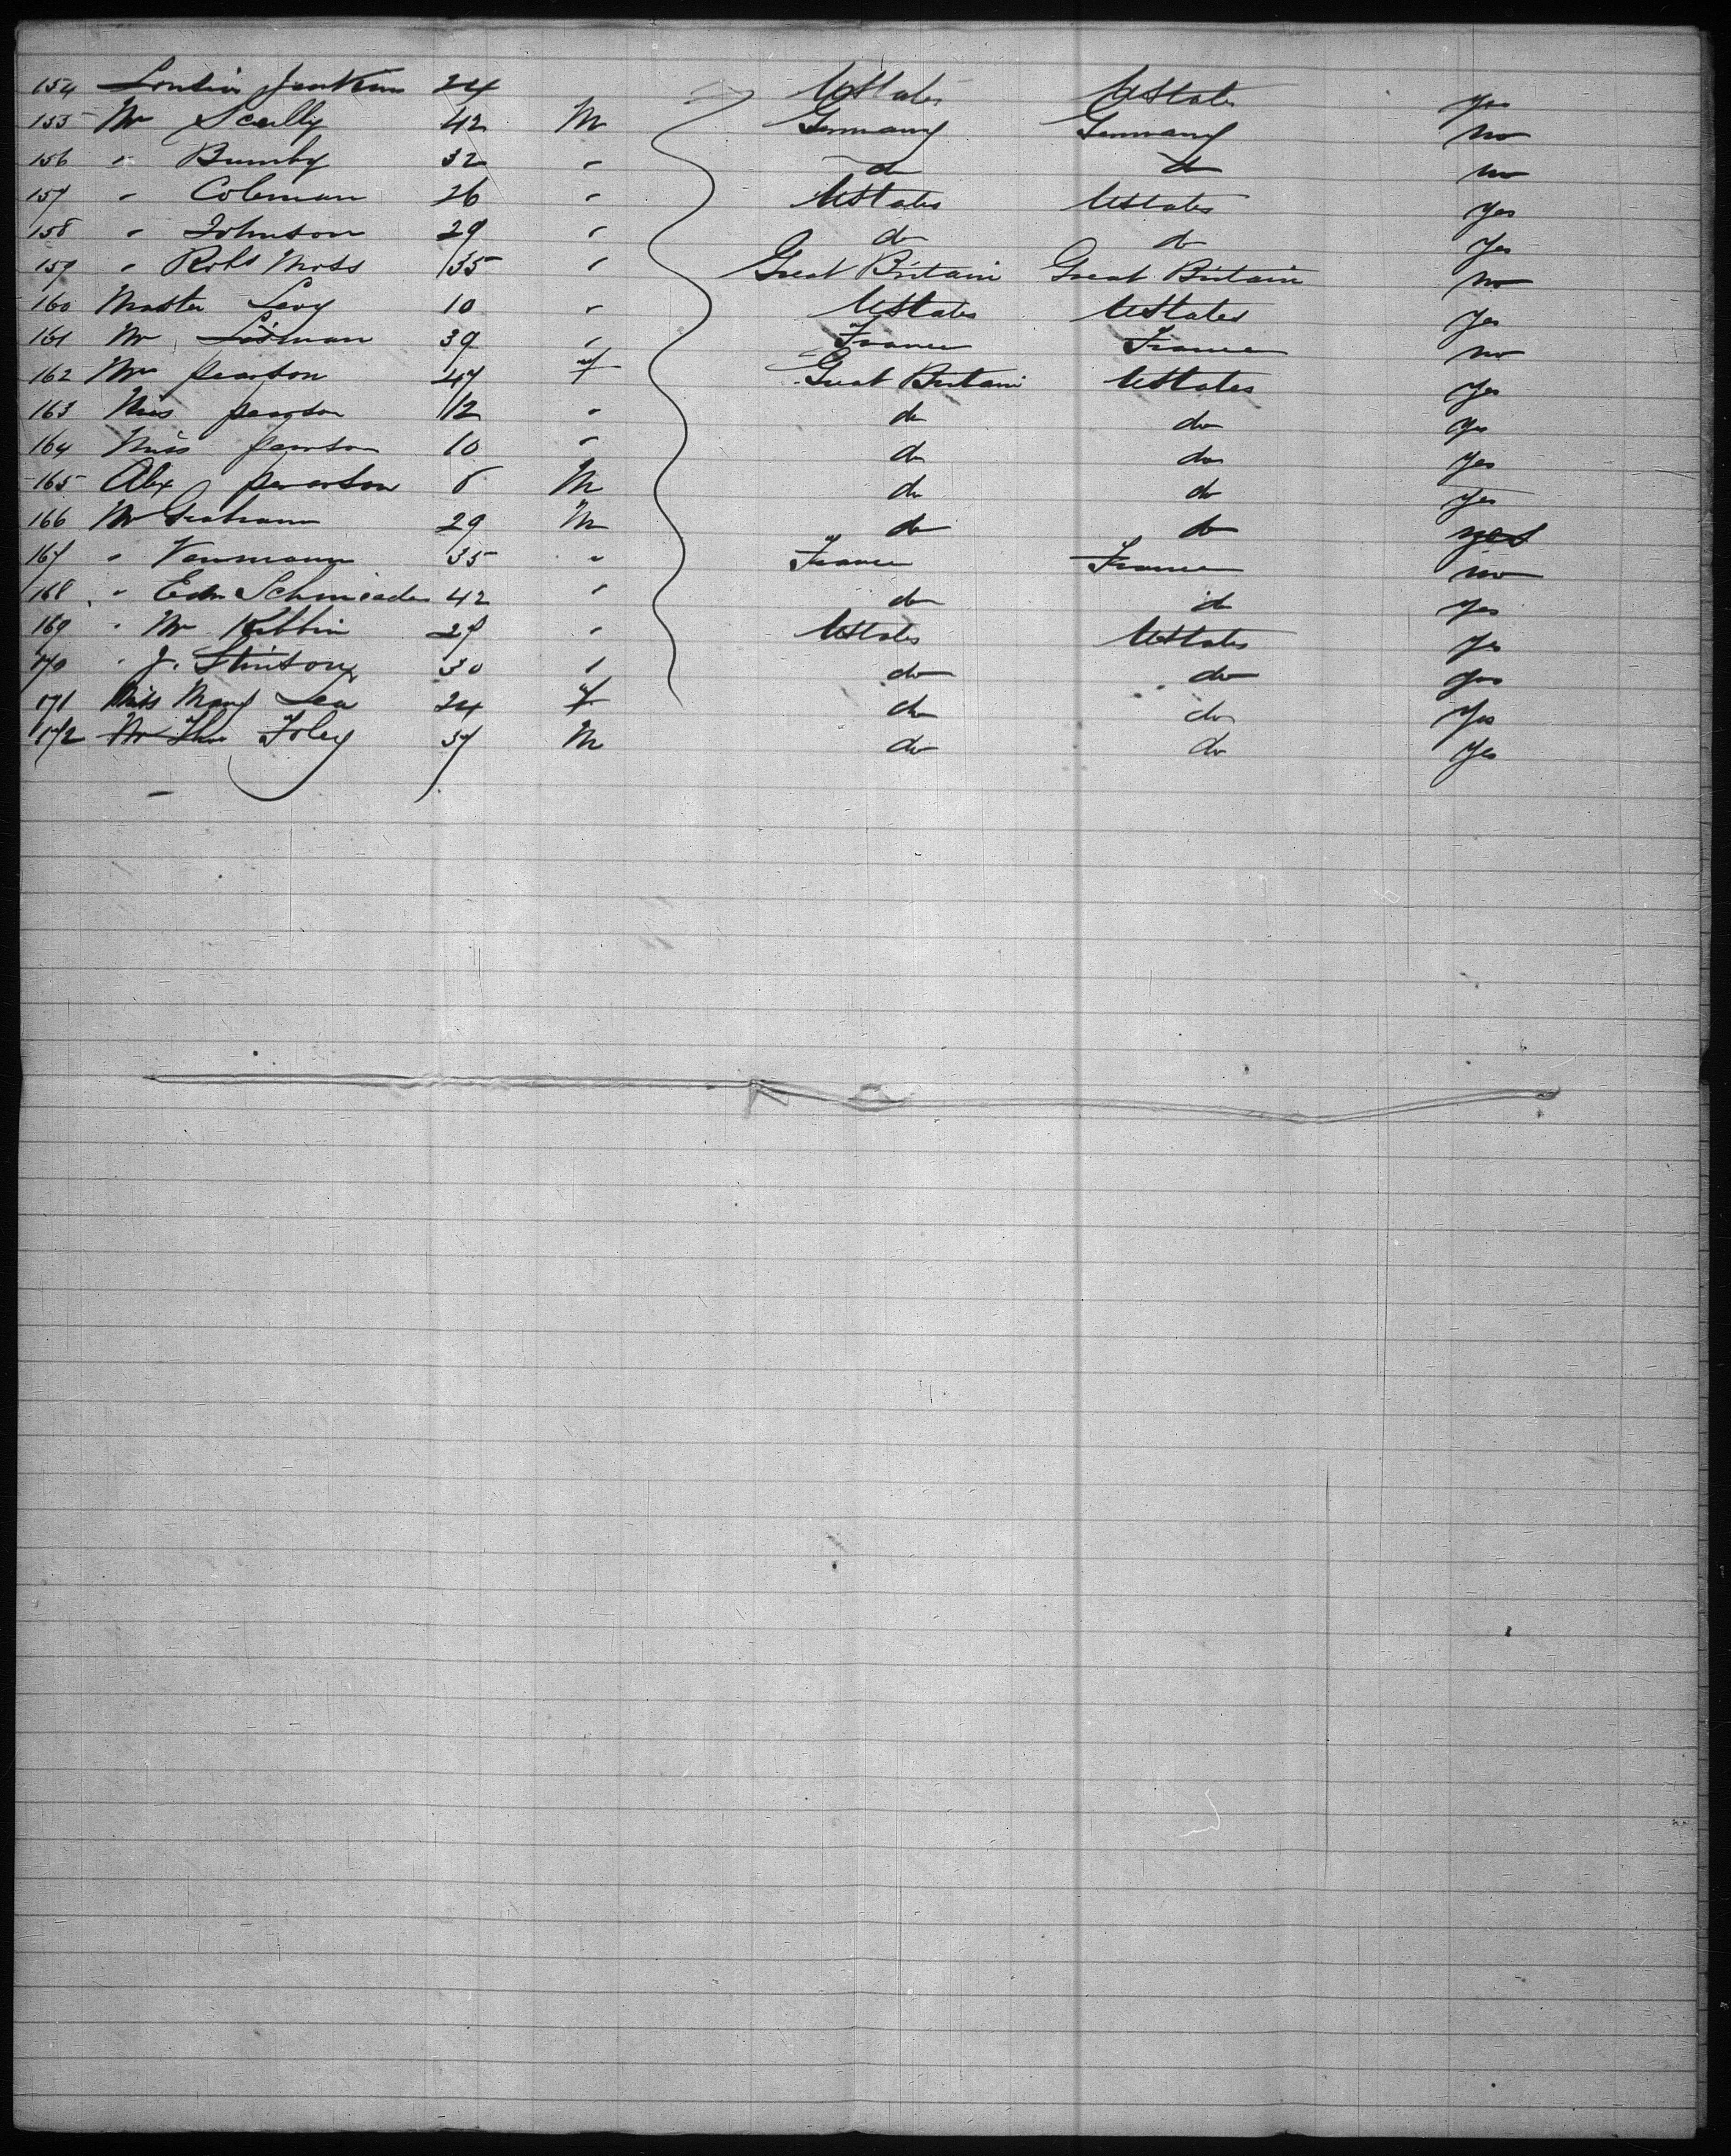 154 Jenkins 24 UStates UStates yes
155 Mr Scully 42 M Germany Germany no
156 " Bumby 32 " do do no
157 " Coleman 26 " UStates UStates yes
158 " Johnson 29 " do do yes
159 " Robt Moss 35 " Great Britain Great Britain no
160 Master Levy 10 " UStates UStates yes
161 Mr 39 " France France no
162 Mrs Pearson 47 f Great Britain UStates yes
163 Miss pearson 12 " do do yes
164 Miss pearson 10 " do do yes
165 Alex pearson M do do yes
166 Mr 29 M do do yes
167 " 35 " France France no
168 " 42 " do do yes
169 " Mc Kibbin 27 " UStates UStates yes
170 " J. Stinson 30 " do do yes
171 Miss Mary Lea 24 f do do yes
172 Mr Thos Foley 37 M do do yes